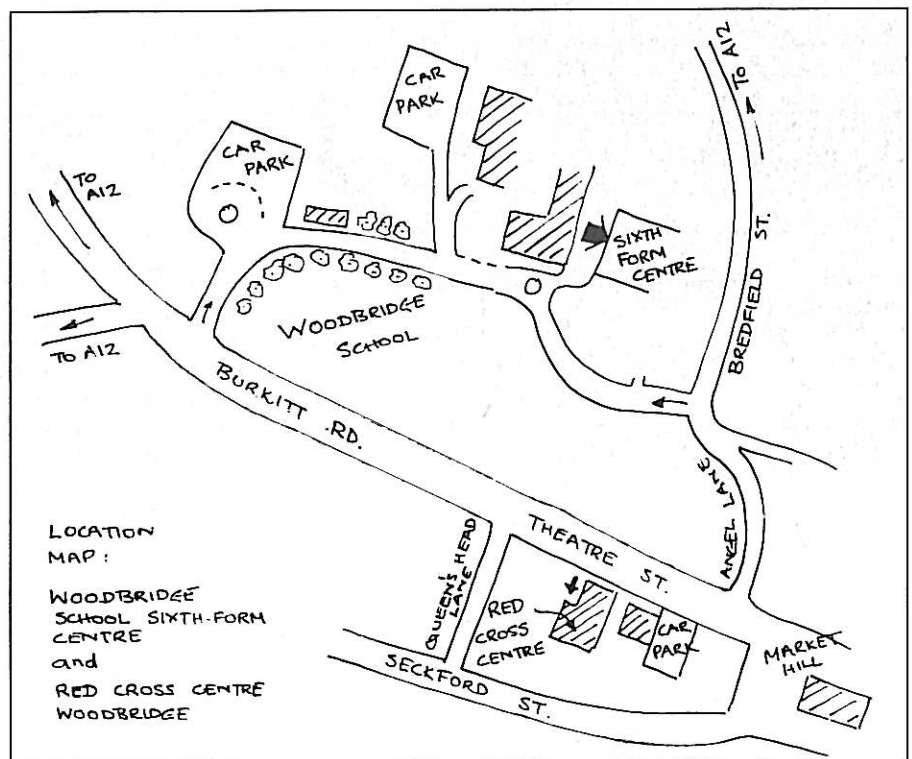 TO A12
CAR
PARK
CAR
PARK
TO
A12
SIXTH
FORM
CENTRE
BREDFIELD ST.
WOODBRIDGE
SCHOOL
TO A12
BURKITT RD.
ANGEL LANE
THEATRE ST.
QUEEN'S HEAD
LANE
RED
CROSS
CENTRE
CAR
PARK
MARKET
HILL
SECKFORD ST.
LOCATION
MAP:
WOODBRIDGE
SCHOOL SIXTH-FORM
CENTRE
and
RED CROSS CENTRE
WOODBRIDGE